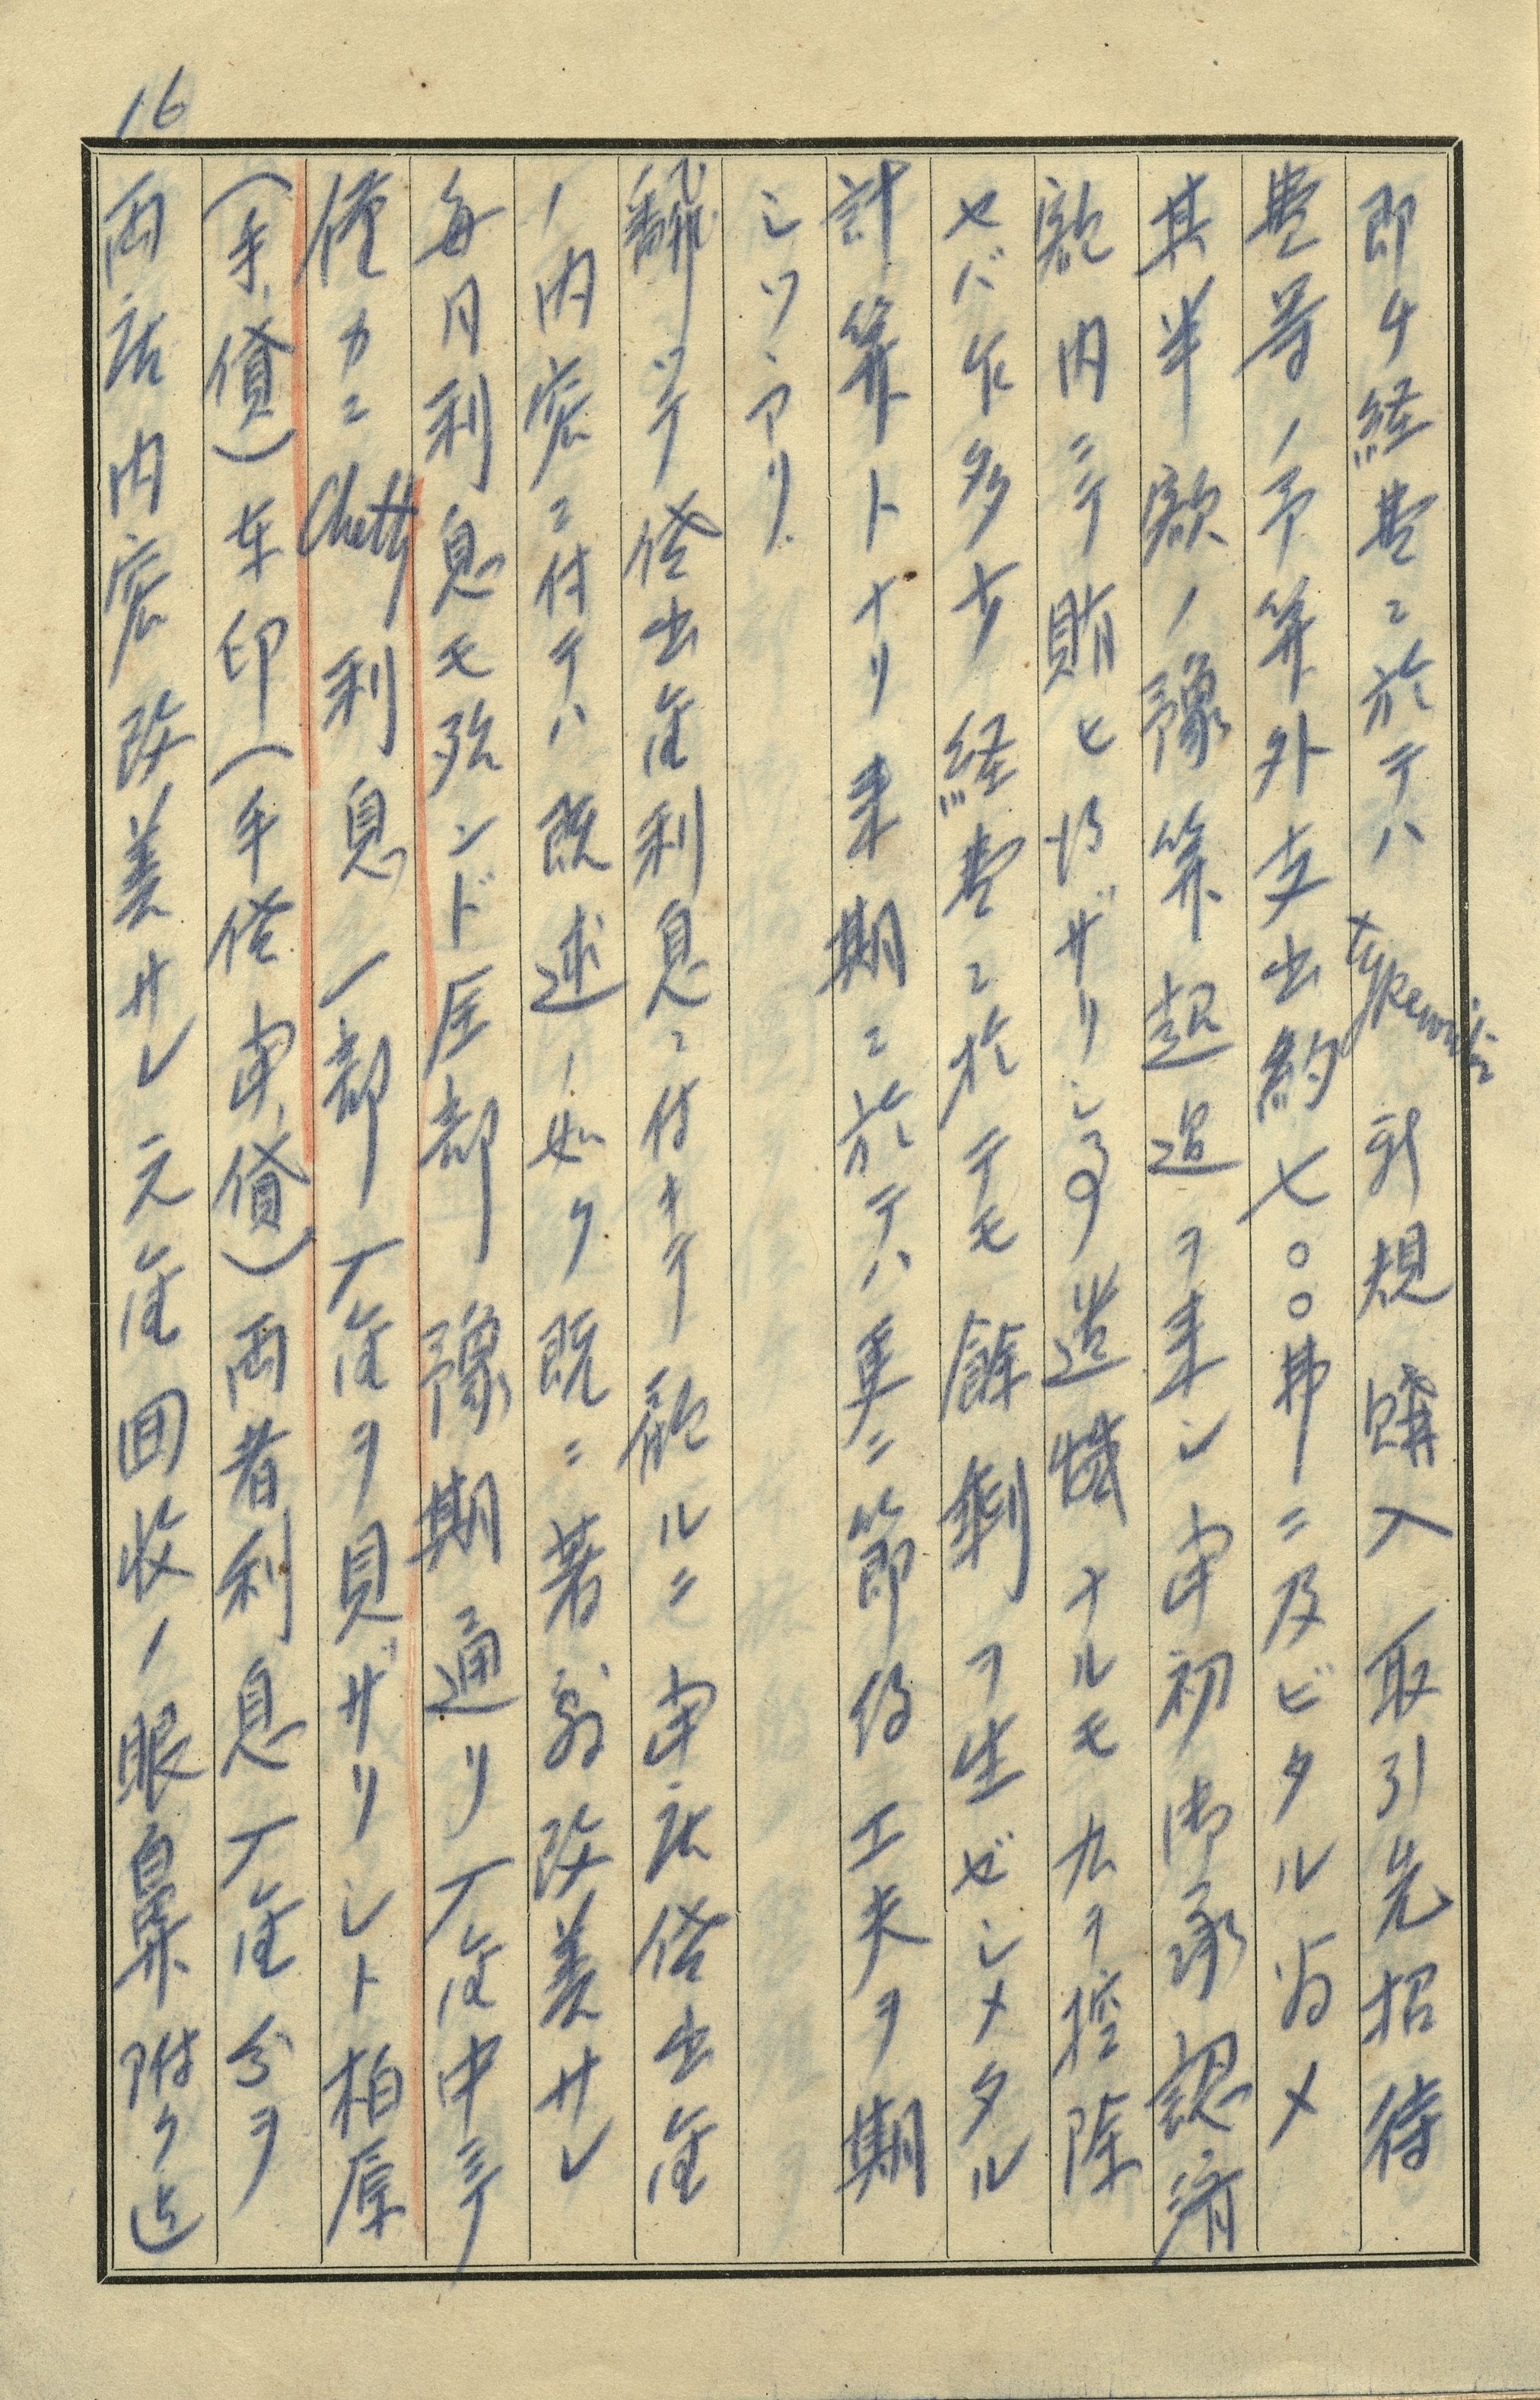 16
即チ経費ニ於テハ typewriter 新規購入 取引先招待
費等ノ予算外支出約七〇〇弗ニ及ビタル為メ
其半額ノ豫算超過ヲ来シ申初御承認済
額内ニテ賄ヒ得ザリシ事遺憾ナルモ 之ヲ控除
セバ 尓多少経費ニ於テモ 餘剰ヲ生ゼシメタル
計算トナリ来期ニ於テハ更ニ節約工夫ヲ期
シツヽアリ
飜ッテ貸出金利息ニ付キテ観ルニ 申訳貸出金
ノ内容ニ付テハ 既述ノ如ク既ニ著敷改善サレ
毎月利息モ殆ンド全部豫期通リ入金中ニテ
僅カニ Chetty 利息一部入金ヲ見ザリシト柏原
(手、貸) 車印(手貸、車、貸) 両者利息入金分ヲ
両店内容改善サレ元金回收ノ眼鼻附ク迄